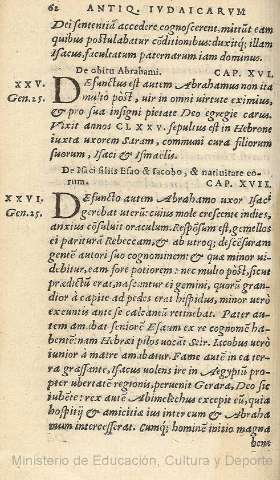 62 ANTIQ. IVDAICARVM
Dei sententiã accedere cognoscerent. mittũt eam
quibus postulabatur cõditionibus: duxitq; illam
Isacus, facultatum paternarum iam dominus.
De obitu Abrahami. CAP. XVI.
XXV.
Gen.25.
DEfunctus est autem Abrahamus non ita
multo pòst, uir in omni uirtute eximius,
& pro sua insigni pietate Deo egregie carus.
Vixit annos CLXXV. sepultus est in Hebrone
iuxta uxorem Saram, communi cura filiorum
suorum, Isaci & Ismaelis.
De Isaci filiis Esao & Iacobo, & natiuitate eo-
rum. CAP. XVII.
XXVI.
Gen.25.
DEfuncto autem Abrahamo uxor Isaci
gerebat uterũ: cuius mole crescente indies,
anxius cõsuluit oraculum. Respõsum est, gemellos
ei pariturã Rebeccam, & ab utroq; descensuram
gentẽ autori suo cognominem: & quæ minor ui-
debitur, eam fore potiorem: nec multo pòst, sicut
prædictũ erat, nascuntur ei gemini, quorũ gran-
dior à capite ad pedes erat hispidus, minor uero
exeuntis ante se calcaneũ retinebat. Pater au-
tem amabat seniorẽ Esaum ex re cognomẽ ha-
bentẽ: nam Hebræi pilos uocãt Seir. Iacobus uero
iunior à matre amabatur. Fame autẽ in ea ter-
ra grassante, Isacus uolens ire in Aegyptũ pro-
pter ubertatẽ regionis, peruenit Gerara, Deo sic
iubẽte: rex autẽ Abimelechus excepit eũ, quia
hospitij & amicitia ius inter eum & Abraha-
mum intercesserat. Cumq; hominẽ initio magna
bene
Ministerio de Educación, Cultura y Deporte